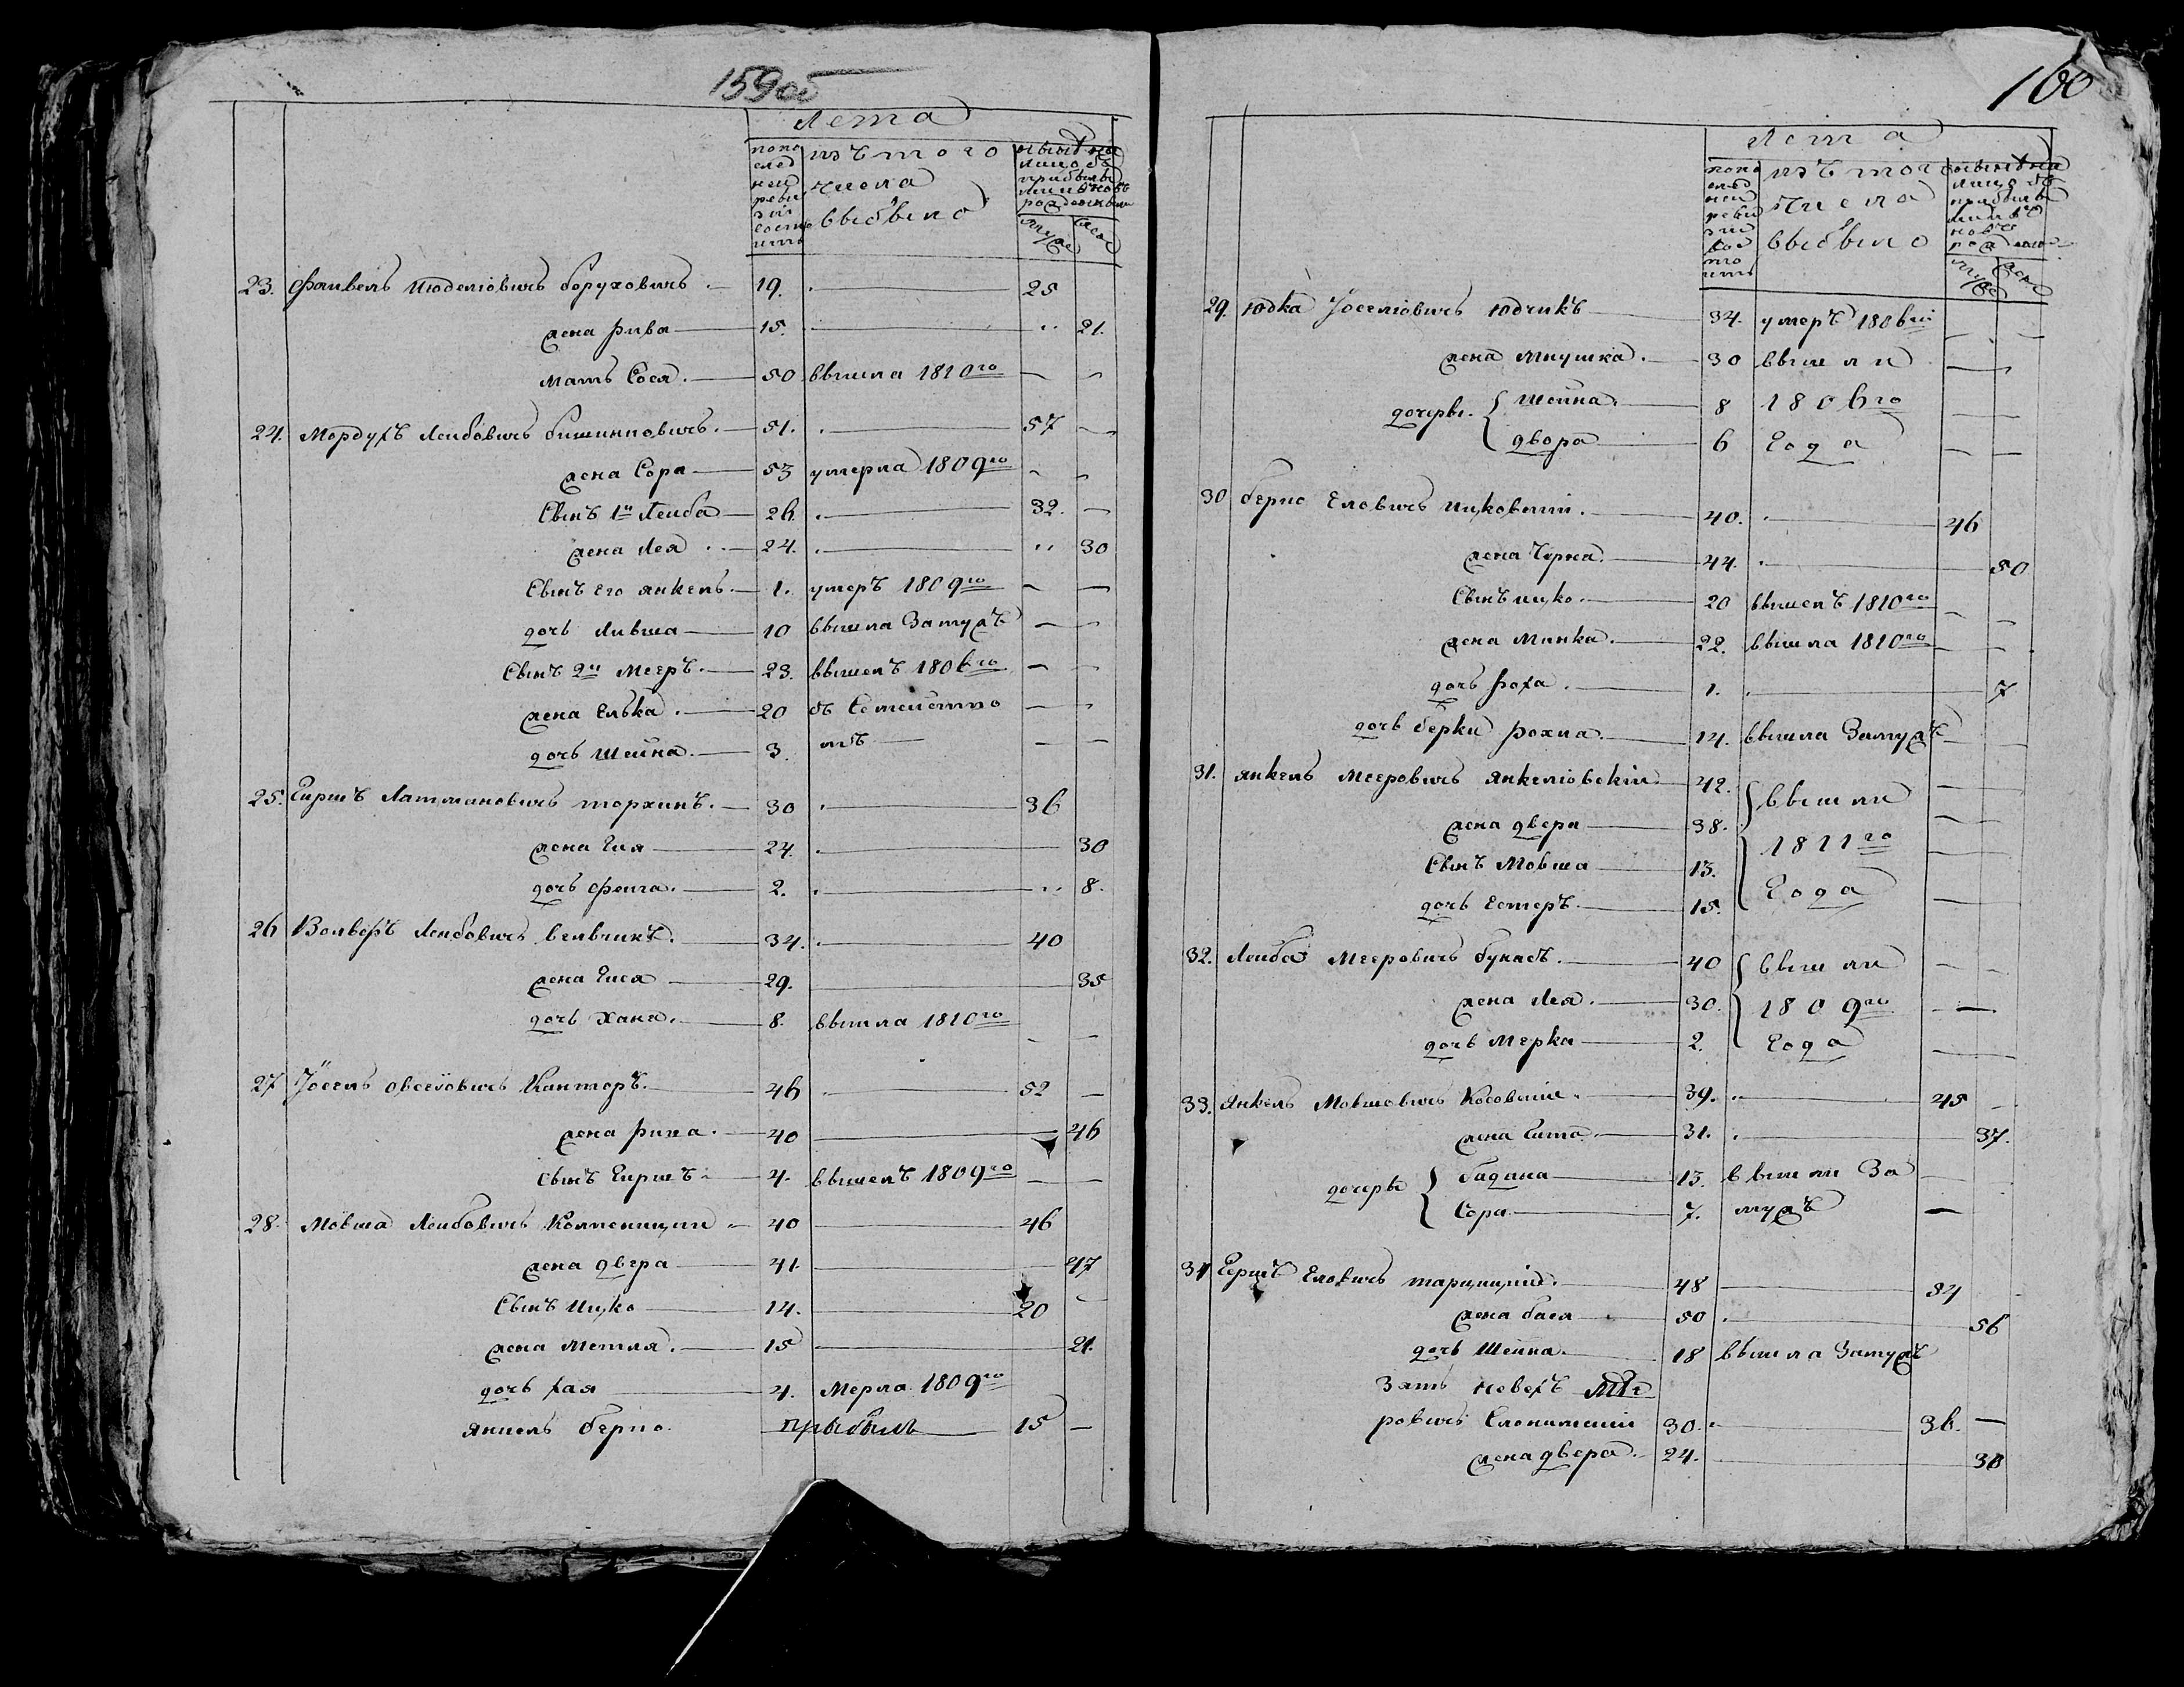 159об
Лета
попо
след
ней
реви
зии
состо
итъ
изъ того
числа
выбыло
мужс
женс
23. Файвель Июделiовичъ Боруховичъ 19. 25
жена Рива 15. 21.
мать Сося. 50 вышла 1810го
24. Мордухъ Лейбовичъ 51. 57
жена Сора 53 умерла 1809го
Сынъ 1й Лейба 26. 32.
жена Лея 24. 30
Сынъ его Янкель. 1. умеръ 1809го
дочь Ливша 10 вышла Замужъ
Сынъ 2й Мееръ. 23. вышелъ 1806го
жена Елька. 20
дочь Шейна. 3.
25. Гиршъ торхинъ. 30 36
жена Гия 24. 30
дочь Фейга. 2. 8.
26 Волверъ Лейбовичъ велвчикъ. 34. 40
жена Гися 29. 35
дочь Хана. 8. вышла 1810го
27 Йосель Овсеiовичъ Канторъ. 46 52
жена 40 46
сынъ Гиршъ 4. вышелъ 1809го
28. Мовша Лейбовичъ 40 46
жена двера 41. 47
Сынъ Ицко 14. 20
жена Метля. 15 21.
дочь Хая 4. Мерла 1809го
Берко. прыбылъ 15
100
Лета
попо
след
ней
реви
зии
сос
то
итъ
изъ того
числа
выбыло
мужс
женс
29. Юдка Йоселiовичъ Юдчикъ 34. умеръ 1806го
жена Мнушка. 30 вышли
дочеры. Шейна. 8 1806го
двора 6 Года
30 Берко Еловичъ Ицковский. 40. 46
жена Черна. 44. 50
Сынъ Ицко. 20 вышелъ 1810го
жена Минка. 22. вышла 1810го
дочь Роха. 1. 7
дочь Берки Рохла. 14. вышла Замужъ
31. Янкель Мееровичъ Янкелiовский 42. вышли
жена двера 38. 1811го
Сынъ Мовша 13. Года
дочь Естеръ. 15.
32. Лейба Мееровичъ 40 вышли
жена Лея. 30. 1809го
дочь Мерка 2. Года
33. Янкель Мовшовичъ Косовский. 39. 45
жена Гита. 31. 37.
дочеры Бадана 13. вышли За
Сора 7. мужъ
34 Гершъ Еловичъ 48 54
жена Бася 50 56
дочь Шейна. 18 вышла Замужъ
Зять Мее
ровичъ Слонимский 30. 36.
жена двера. 24. 30